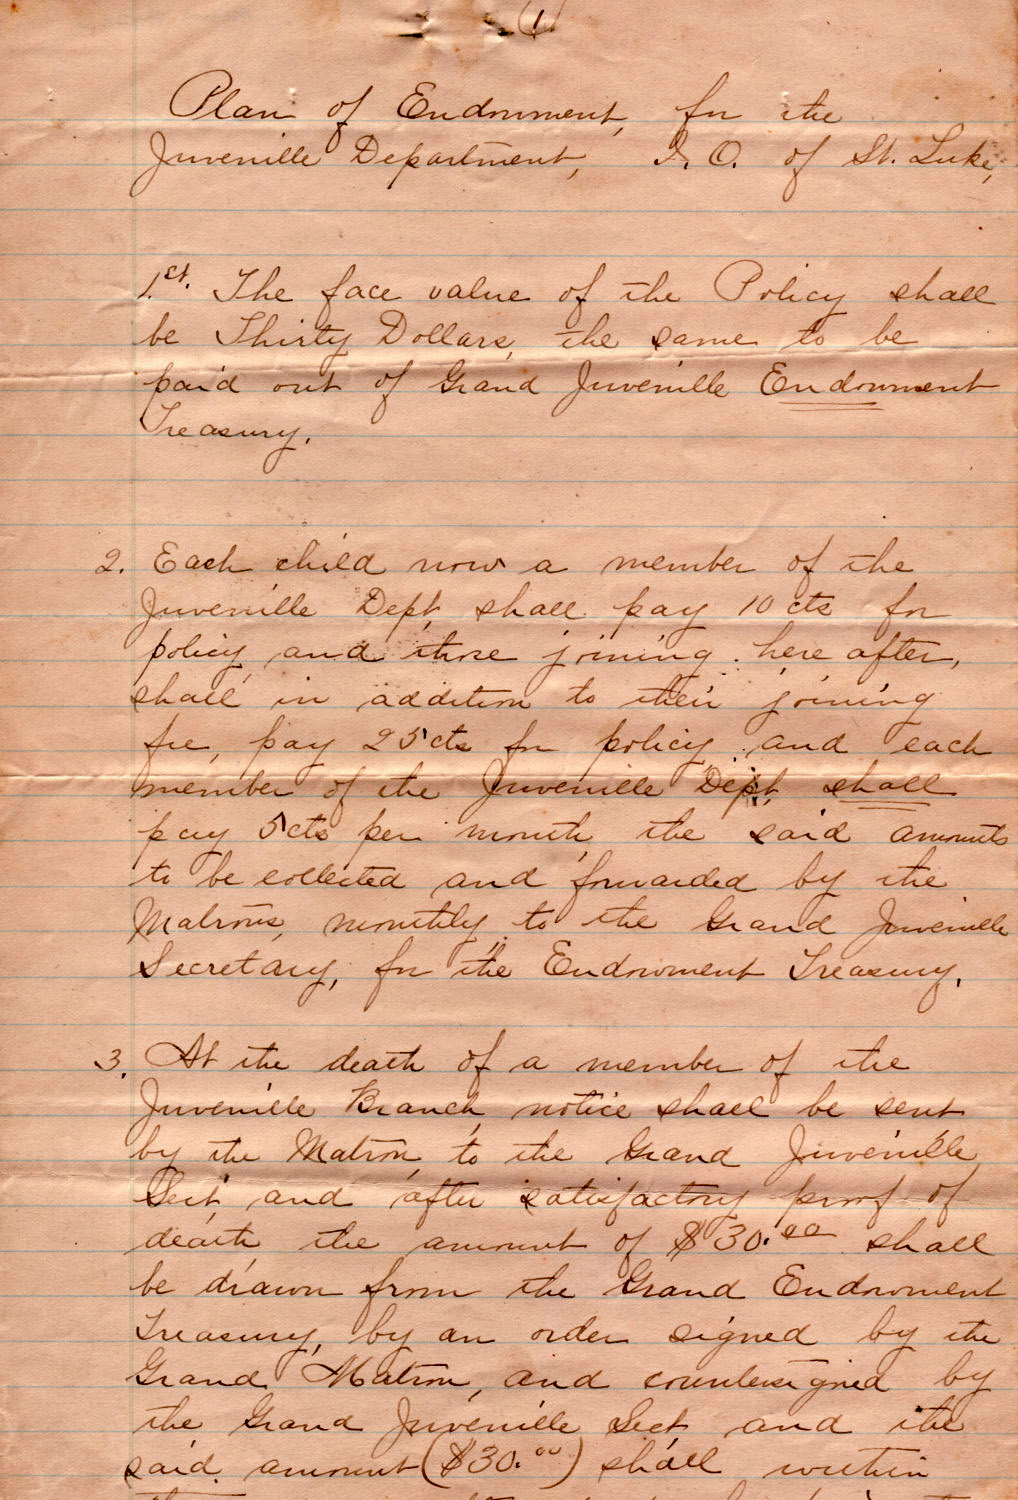 (1
Plan of Endowment, for the
Juvenille Department, I. O. of St. Luke,
1.st. The face value of the Policy shall
be Thirty Dollars, the same to be
paid out of Grand Juvenille Endowment
Treasury.
2. Each child now a member of the
Juvenille Dept, shall pay 10 cts for
policy, and those joining here after,
shall in addition to their joining
fee, pay 25 cts for policy, and each
member of the Juvenille Dept, shall
pay 5 cts per month, the said amounts
to be collected and forwarded by the
Matrons, monthly, to the Grand Juvenille
Secretary, for the Endowment Treasury.
3. At the death of a member of the
Juvenille Branch, notice shall be sent
by the Matron, to the Grand Juvenille
Sect, and after satisfactory proof of
death the amount of $30.00 shall
be drawn from the Grand Endowment
Treasury, by an order signed by the
Grand Matron, and countersigned by
the Grand Juvenille Sect, and the
said amount ($30.00) shall within